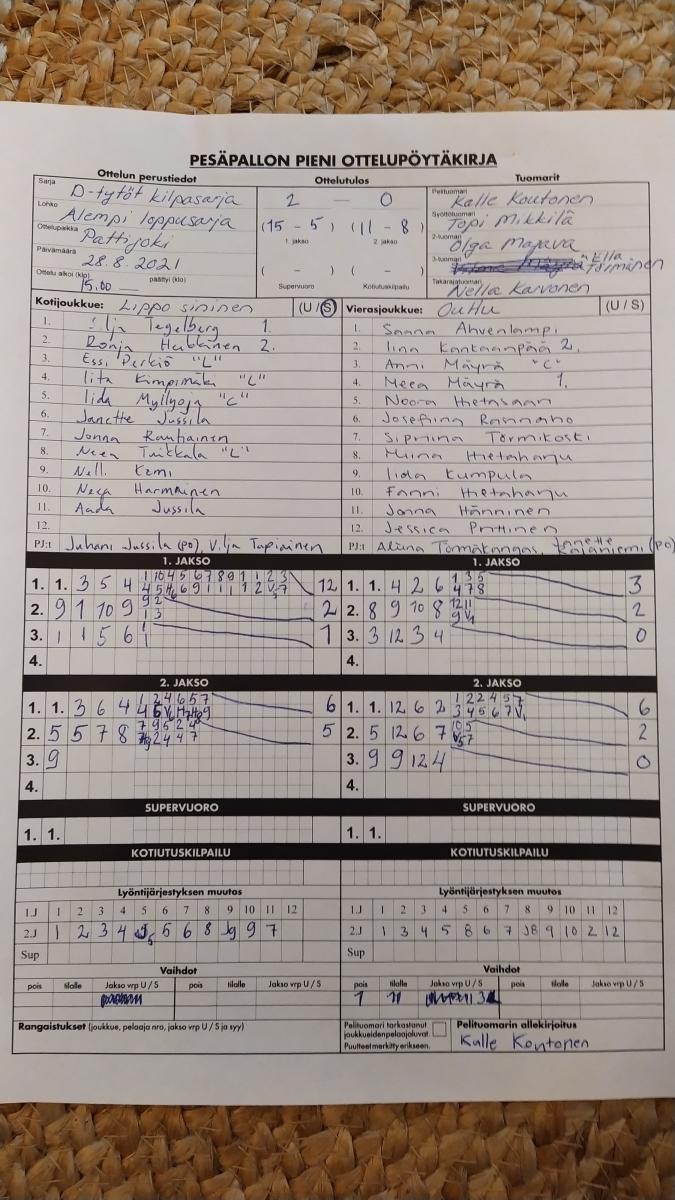 PESÄPALLON PIENI OTTELUPÖYTÄKIRJA
Ottelun perustiedot
Ottelutulos
Tuomarit
Sarja D-tytöt kilpasarja
Lohko Alempi loppusarja
Ottelupaikka Pattijoki
Päivämäärä 28.8.2021
Ottelu alkoi (klo) 15.00 päättyi (klo)
2 – 0
(15 – 5) (11 – 8)
1 jakso 2 jakso
( – ) ( – )
Supervuoro Kotiutuskilpailu
Pelituomari Kalle Koutonen
Syöttötuomari Topi Mikkilä
2-tuomari Olga Majava
3-tuomari Ella Törmänen
Takarajatuomari Nella Karvonen
Kotijoukkue: Lippo sininen (U / S)
1. Silja Tegelberg 1.
2. Ronja Heikkinen 2.
3. Essi Perkiö "L"
4. Iita Kimpimäki "L"
5. Iida Myllyoja "C"
6. Janette Jussila
7. Jonna Rautiainen
8. Neea Tuikkala "L"
9. Nelli Kemi
10. Neea Harmainen
11. Aada Jussila
12.
PJ:t Juhani Jussila (po), Vilja Tapiainen
Vierasjoukkue: OuHu (U / S)
1. Saana Ahvenlampi
2. Iina Kantaanpää 2.
3. Anni Mäyrä "C"
4. Meea Mäyrä 1.
5. Noora Hietasaari
6. Josefiina Rannaho
7. Sipriina Törmikoski
8. Miina Hietaharju
9. Iida Kumpula
10. Fanni Hietaharju
11. Jonna Hänninen
12. Jessica Piittinen
PJ:t Aliina Törmäkangas, Janette Kajaniemi (po)
1. JAKSO
1. 1. 3 5 4 12
2. 9 1 10 9 2
3. 1 1 5 6 1
4.
1. JAKSO
1. 1. 4 2 6 1 3 5 4 7 8 3
2. 8 9 10 8 12 11 2
3. 3 12 3 4 0
4.
2. JAKSO
1. 1. 3 6 4 6
2. 5 5 7 8 5
3. 9
4.
2. JAKSO
1. 1. 12 6 2 6
2. 5 12 6 7 2
3. 9 9 12 4 0
4.
SUPERVUORO
1. 1.
SUPERVUORO
1. 1.
KOTIUTUSKILPAILU
KOTIUTUSKILPAILU
Lyöntijärjestyksen muutos
1.J 1 2 3 4 5 6 7 8 9 10 11 12
2.J 1 2 3 4 J5 5 6 8 J9 9 7
Sup
Lyöntijärjestyksen muutos
1.J 1 2 3 4 5 6 7 8 9 10 11 12
2.J 1 3 4 5 8 6 7 J8 9 10 2 12
Sup
Vaihdot
pois tilalle Jakso vrp U / S pois tilalle Jakso vrp U / S
Vaihdot
pois tilalle Jakso vrp U / S pois tilalle Jakso vrp U / S
Rangaistukset (joukkue, pelaaja nro, jakso vrp U / S ja syy)
Pelituomari tarkastanut joukkueidenpelaajaluvat.
Puutteet merkitty erikseen.
Pelituomarin allekirjoitus
Kalle Koutonen